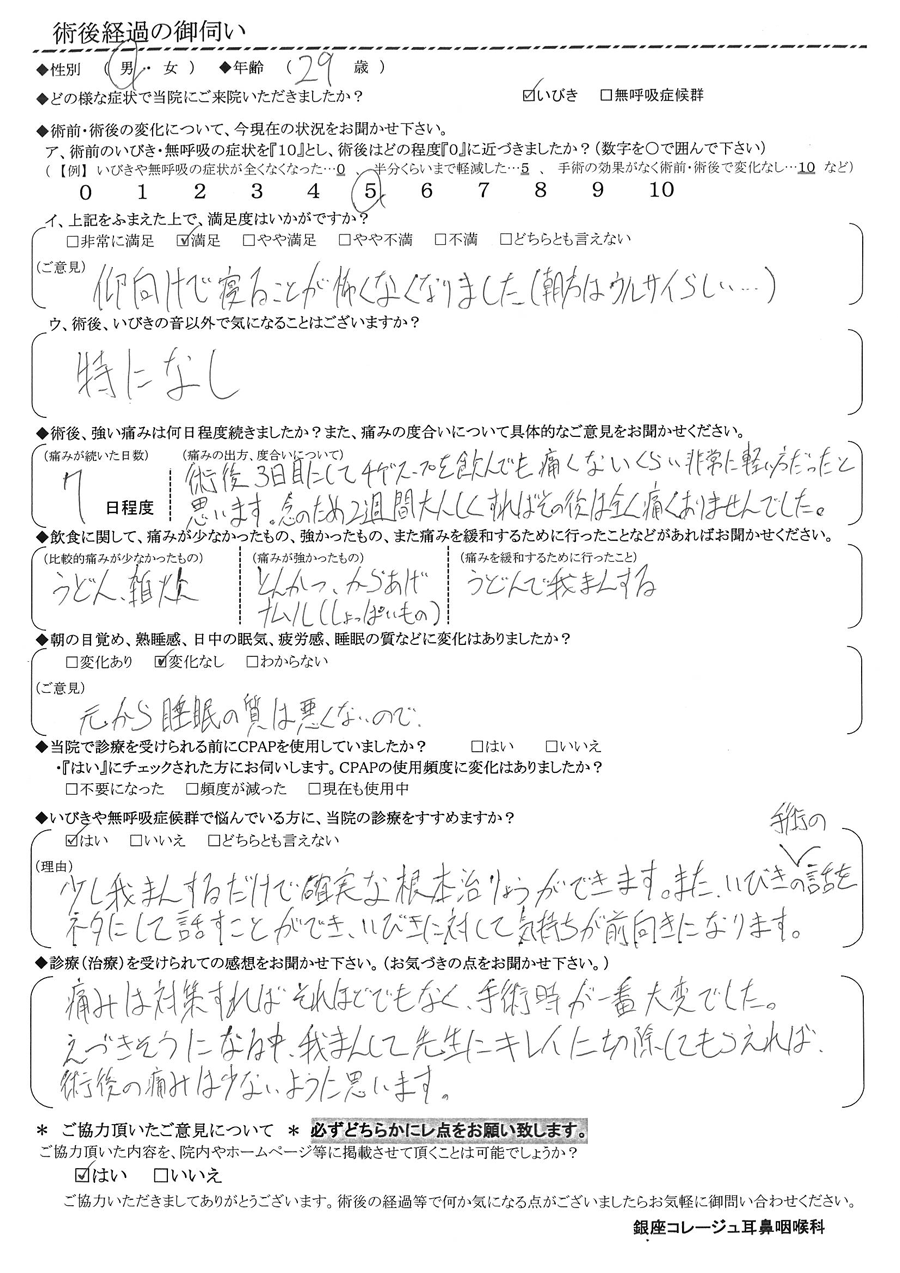 術後経過の御伺い
◆性別 （ 男 ・ 女 ） ◆年齢 （ 29 歳 ）
◆どの様な症状で当院にご来院いただきましたか？ ☑いびき □無呼吸症候群
◆術前・術後の変化について、今現在の状況をお聞かせ下さい。
ア、術前のいびき・無呼吸の症状を『10』とし、術後はどの程度『0』に近づきましたか？（数字を○で囲んで下さい）
（【例】いびきや無呼吸の症状が全くなくなった…0 、 半分くらいまで軽減した…5 、 手術の効果がなく術前・術後で変化なし…10 など）
0 1 2 3 4 5 6 7 8 9 10
イ、上記をふまえた上で、満足度はいかがですか？
□非常に満足 ☑満足 □やや満足 □やや不満 □不満 □どちらとも言えない
（ご意見）
仰向けで寝ることが怖くなくなりました（朝方はウルサイらしい…）
ウ、術後、いびきの音以外で気になることはございますか？
特になし
◆術後、強い痛みは何日程度続きましたか？また、痛みの度合いについて具体的なご意見をお聞かせください。
（痛みが続いた日数） （痛みの出方、度合いについて）
7 日程度
術後3日目にしてチゲスープを飲んでも痛くないくらい非常に軽い方だったと
思います。念のため2週間大人しくすればその後は全く痛くありませんでした。
◆飲食に関して、痛みが少なかったもの、強かったもの、また痛みを緩和するために行ったことなどがあればお聞かせください。
（比較的痛みが少なかったもの） （痛みが強かったもの） （痛みを緩和するために行ったこと）
うどん、雑炊 とんかつ、からあげ うどんで我まんする
ナムル（しょっぱいもの）
◆朝の目覚め、熟睡感、日中の眠気、疲労感、睡眠の質などに変化はありましたか？
□変化あり ☑変化なし □わからない
（ご意見）
元から睡眠の質は悪くないので．
◆当院で診療を受けられる前にCPAPを使用していましたか？ □はい □いいえ
・『はい』にチェックされた方にお伺いします。CPAPの使用頻度に変化はありましたか？
□不要になった □頻度が減った □現在も使用中
◆いびきや無呼吸症候群で悩んでいる方に、当院の診療をすすめますか？
☑はい □いいえ □どちらとも言えない
（理由）
手術の
少し我まんするだけで確実な根本治りょうができます。また、いびきの話を
ネタにして話すことができ、いびきに対して気持ちが前向きになります。
◆診療（治療）を受けられての感想をお聞かせ下さい。（お気づきの点をお聞かせ下さい。）
痛みは対集すればそれほどでもなく、手術時が一番大変でした。
えづきそうになる中、我まんして先生にキレイに切除してもらえれば、
術後の痛みは少ないように思います。
＊ ご協力頂いたご意見について ＊ 必ずどちらかにレ点をお願い致します。
ご協力頂いた内容を、院内やホームページ等に掲載させて頂くことは可能でしょうか？
☑はい □いいえ
ご協力いただきましてありがとうございます。術後の経過等で何か気になる点がございましたらお気軽に御問い合わせください。
銀座コレージュ耳鼻咽喉科